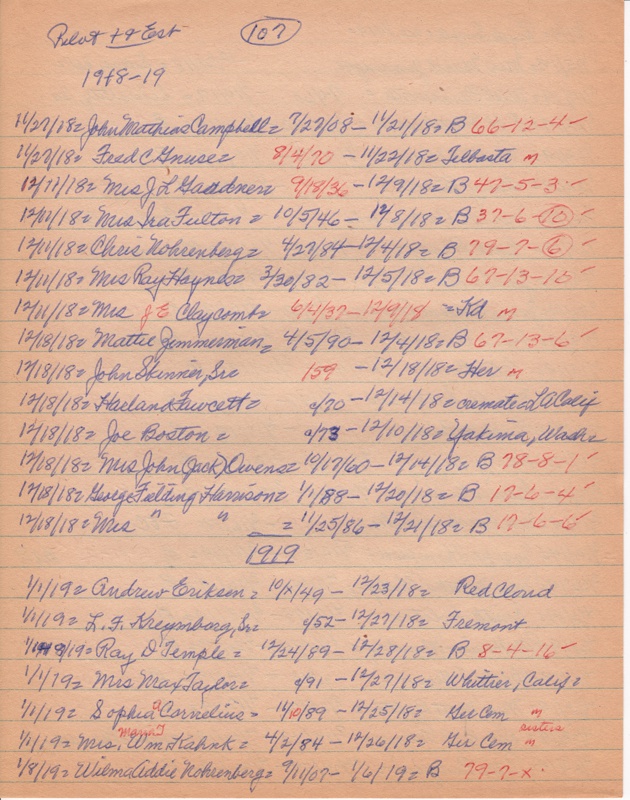 Pilot + & Est (107)
1918-19
11/27/18= John Matthias Campbell= 7/27/08 - 11/21/18= B 66-12-4 -
11/27/18= Fred C Gnuse= 8/4/70 - 11/22/18= Telbasta m
12/11/18= Mrs J L Gardner= 9/18/36 - 12/9/18= B 47-5-3 -
12/11/18= Mrs Ira Fulton = 10/5/46 - 12/8/18= B 37-6-10 -
12/11/18= Chris Nohrenberg= 4/27/84 - 12/4/18= B 79-7-6 -
12/11/18= Mrs Ray Haynes= 3/30/82 - 12/5/18= B 67-13-
12/11/18= Mrs J E Claycomb= 6/4/37 - 12/9/18 = Kd m
12/18/18= Mattie Zimmerman= 4/5/90 - 12/4/18= B 67-13-6 -
12/18/18= John Skinner, Sr= 159 - 12/18/18= Her m
12/18/18= Harland Fawcett= c/70 - 12/14/18= cremate=LA Calif
12/18/18= Joe Boston = c/73 - 12/10/18= Yakima, Wash=
12/18/18= Mrs John (Jack) Owens= 10/17/60 - 12/14/18= B 78-8-1 -
12/18/18= George Fielding Harrison= 1/1/88 - 12/20/18= B 17-6-4 -
12/18/18= Mrs " " = 11/25/86 - 12/21/18= B 17-6-5 -
1919
1/1/19= Andrew Eriksen = 10/x/49 - 12/23/18= Red Cloud
1/1/19= L. F. Kreymborg, Sr= c/52 - 12/27/18= Fremont
/19= Ray D Temple = 12/24/89 - 12/28/18= B 8-4-15 -
1/1/19= Mrs Max Taylor= c/91 - 12/27/18= Whittier, Calif=
1/1/19= Sophia Cornelius= 11/10/89 - 12/25/18= Ger Cem m
sisters
Maria T
1/1/19= Mrs. Wm Kahnk = 4/2/84 - 12/26/18= Ger Cem m
1/8/19= Wilma Addie Nohrenberg= 9/11/07 - 1/6/19= B 79-7-x.